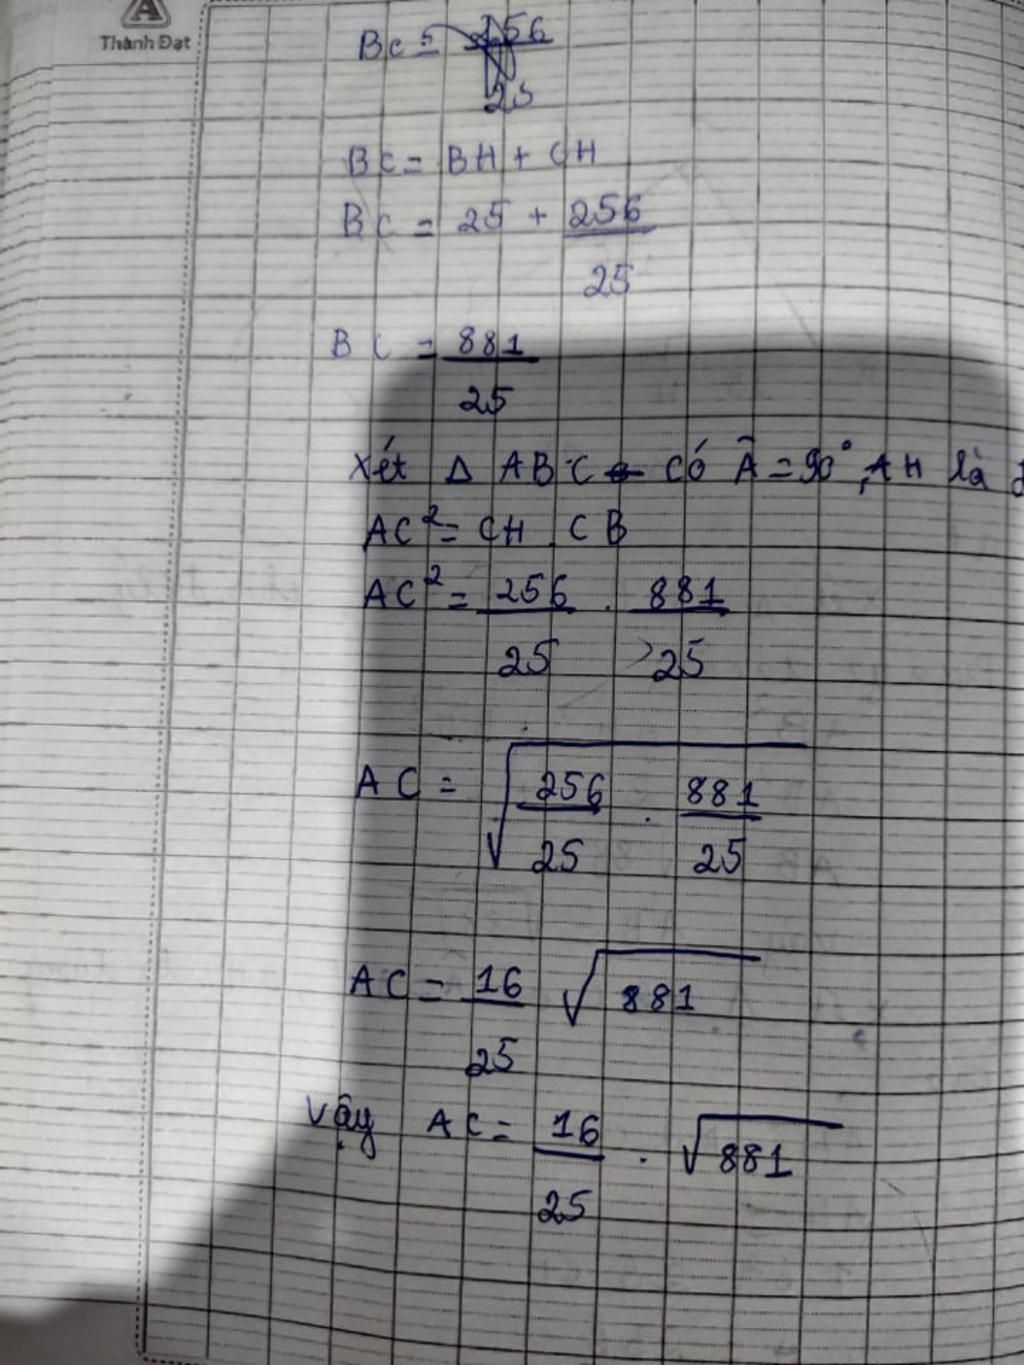 Thành Đạt
BC = 256
25
BC = BH + CH
BC = 25 + 256
25
BC = 881
25
Xét Δ ABC có Â = 90°, AH là đ
AC² = CH . CB
AC² = 256 . 881
25 25
AC = √ 256 . 881
25 25
AC = 16 √881
25
Vậy AC = 16 . √881
25